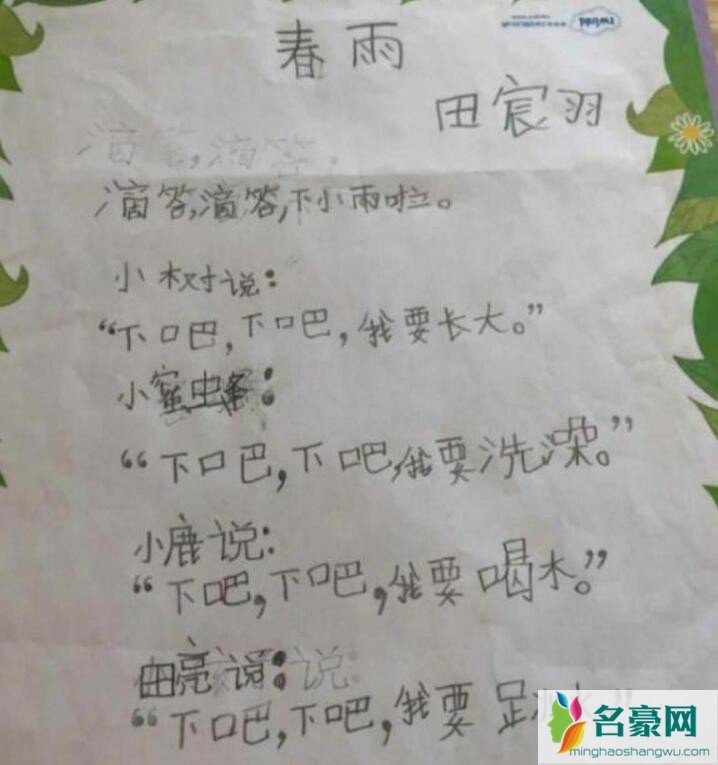 春雨
田宸羽
滴答,滴答,
滴答,滴答,下小雨啦。
小树说:
“下吧,下吧,我要长大。”
小蜜蜂:
“下吧,下吧,我要洗澡。”
小鹿说:
“下吧,下吧,我要喝水。”
田亮说:说:
“下吧,下吧,我要
twinkl
名豪网
minghaoshangwu.com